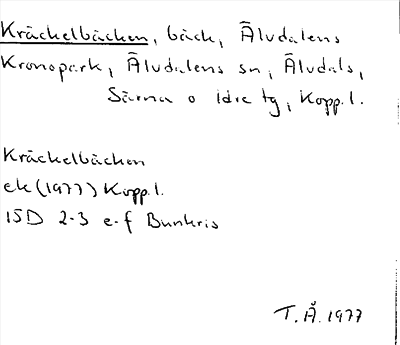 Kräckelbäcken, bäck, Älvdalens
Kronopark, Älvdalens sn, Älvdals,
Särna o Idre tg, Kopp.l.
Kräckelbäcken
ek (1977) Kopp.l.
15D 2-3 e-f Bunkris
T.Å. 1977